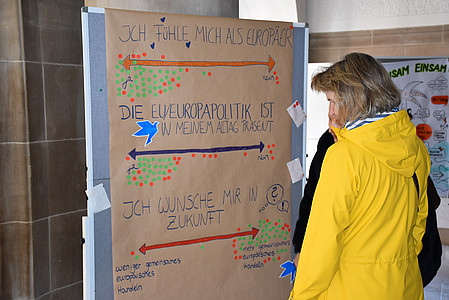 ICH FÜHLE MICH ALS EUROPÄER
ja
nein
DIE EU/EUROPAPOLITIK IST
IN MEINEM ALTAG PRÄSENT
ja
nein
ICH WÜNSCHE MIR IN
ZUKUNFT
weniger gemeinsames
europäisches
Handeln
mehr gemeinsames
europäisches
Handeln
SAM EINSAM